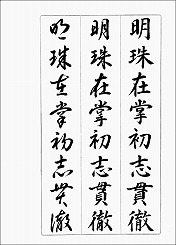 明珠在掌初志貫徹
明珠在掌初志貫徹
明珠在掌初志貫徹